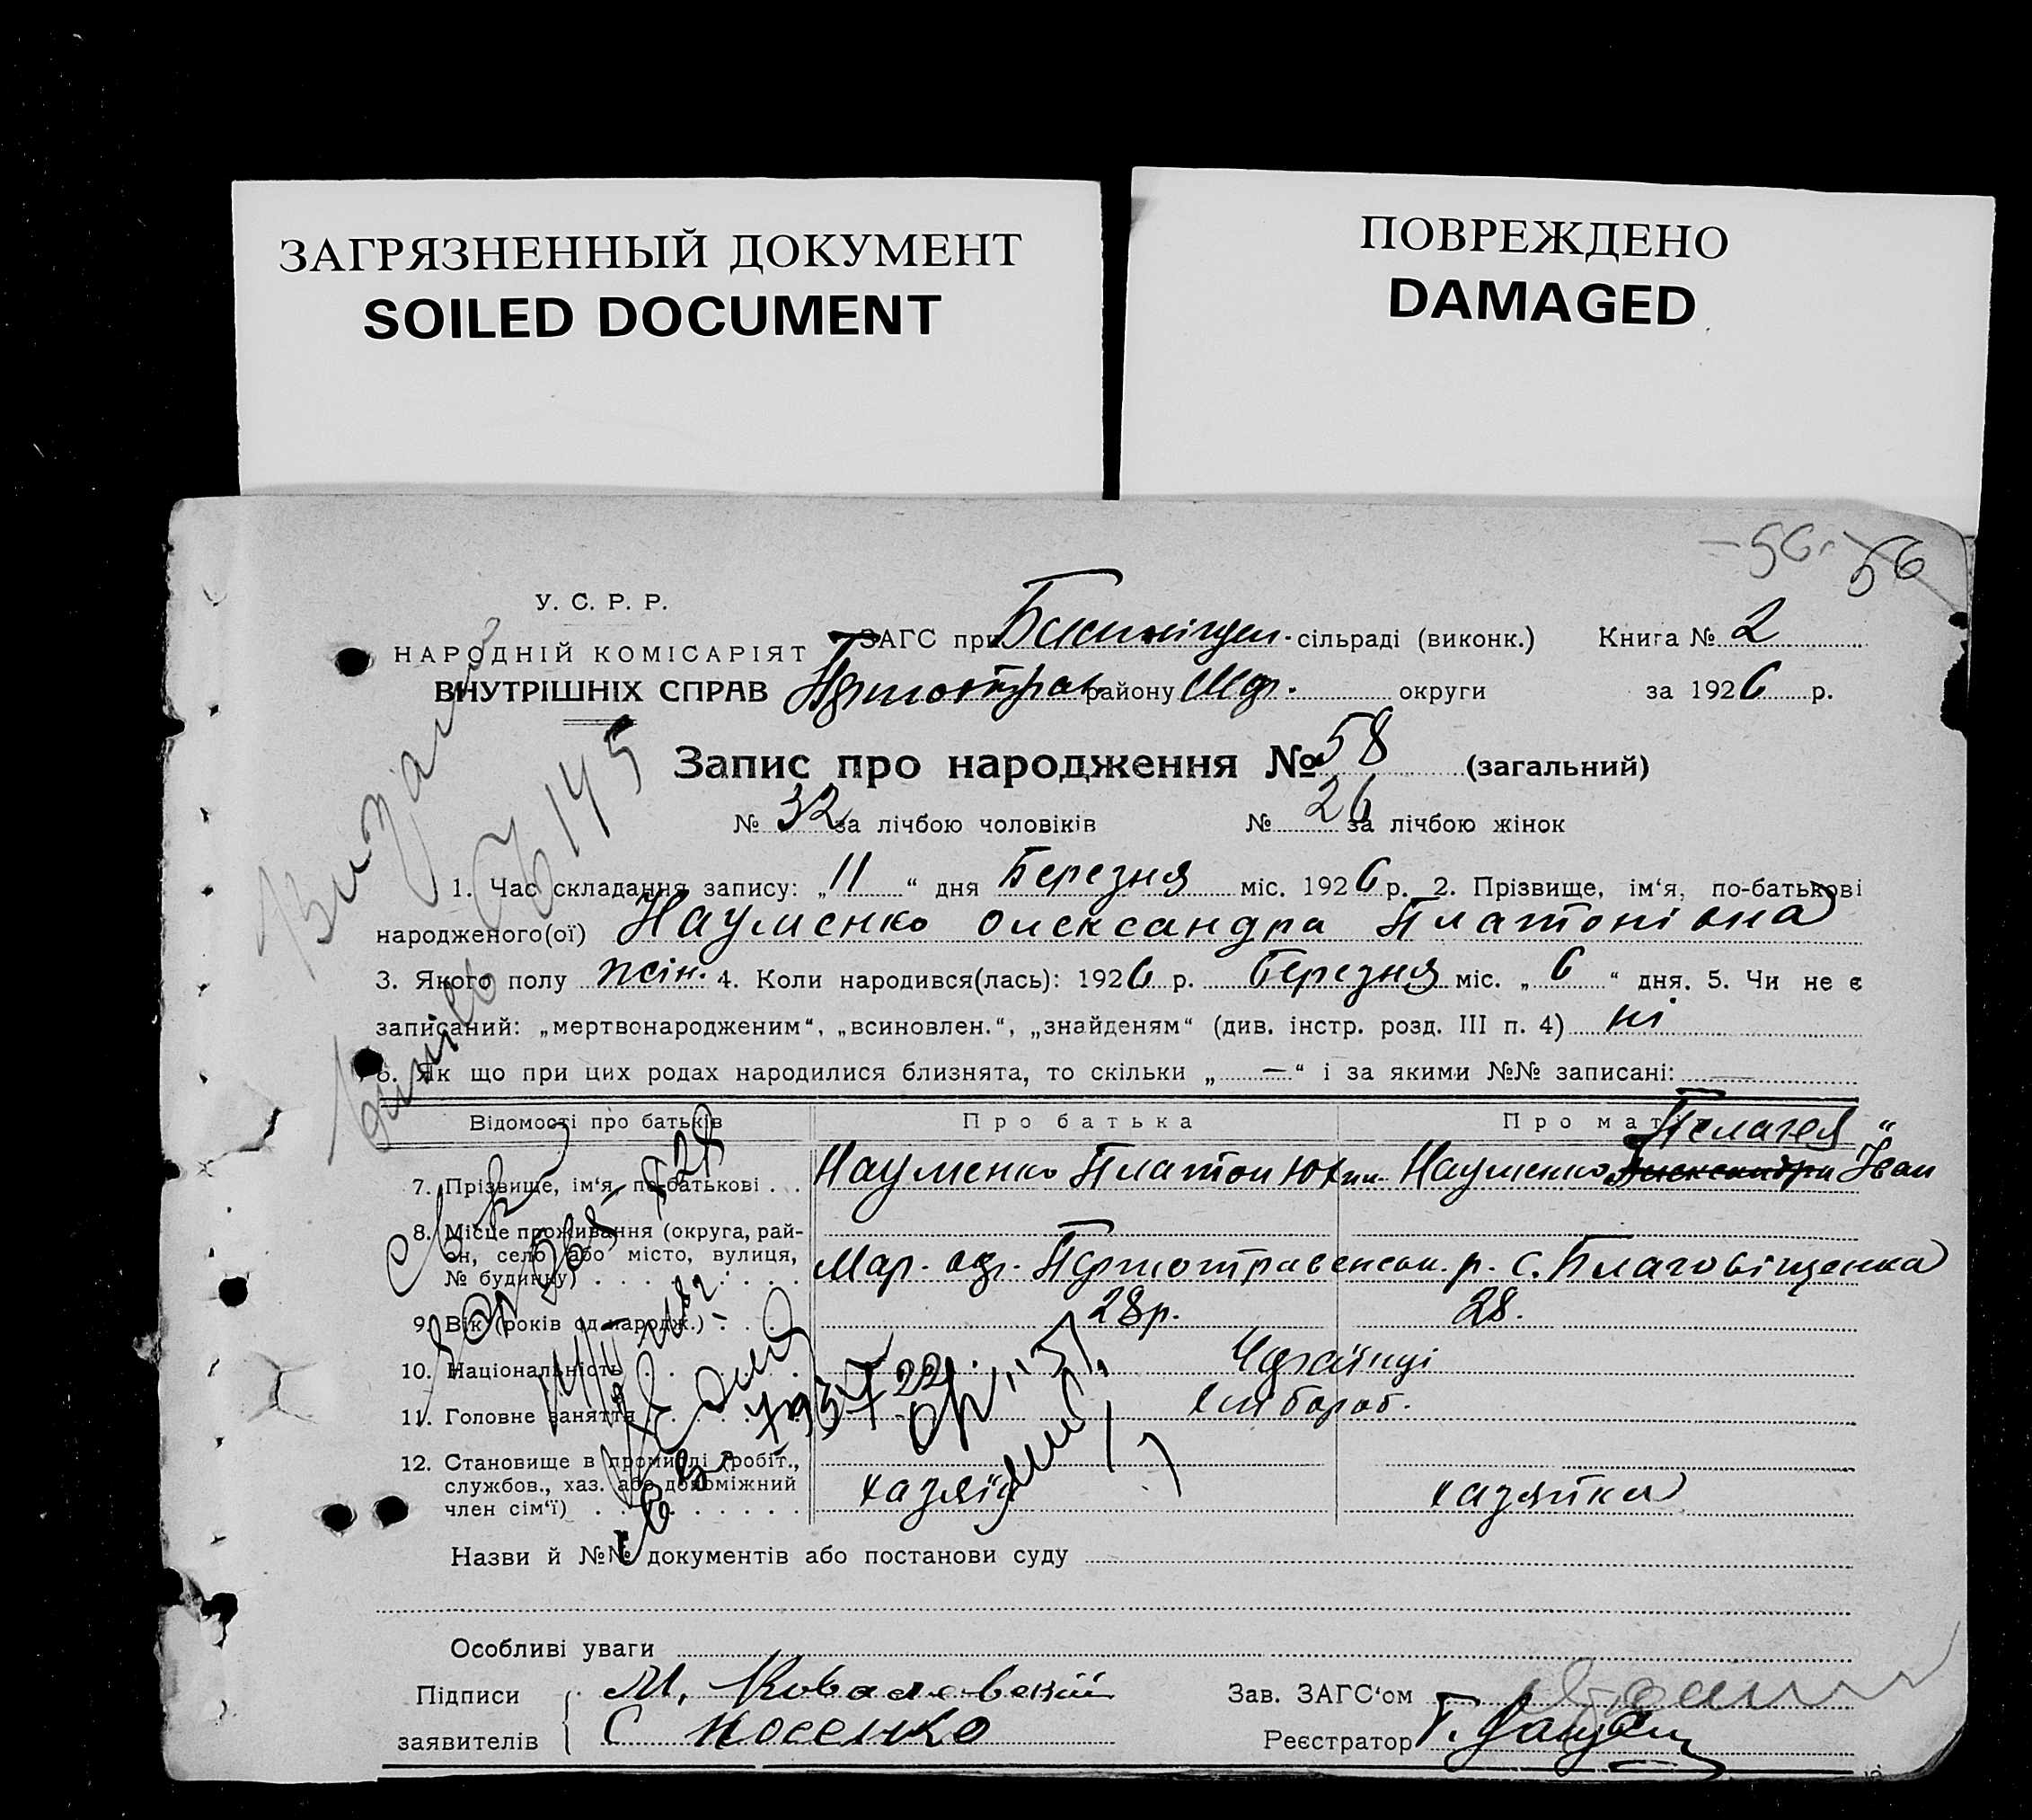 ЗАГРЯЗНЕННЫЙ ДОКУМЕНТ
SOILED DOCUMENT
ПОВРЕЖДЕНО
DAMAGED
-56-
56
У. С. Р. Р.
НАРОДНІЙ КОМІСАРІЯТ
ВНУТРІШНІХ СПРАВ
ЗАГС при сільраді (виконк.) Книга № 2
району Мар. округи за 1926 р.
Запис про народження № 58 (загальний)
№ 32 за лічбою чоловіків № 26 за лічбою жінок
1. Час складання запису: „11“ дня Березня міс. 1926 р. 2. Прізвище, ім‘я, по-батькові
народженого(ої) Науменко Олександра Платонівна
3. Якого полу жін. 4. Коли народився(лась): 1926 р. Березня міс. „6“ дня. 5. Чи не є
записаний: „мертвонародженим“, „всиновлен.“, „знайденям“ (див. інстр. розд. III п. 4) ні
6. Як що при цих родах народилися близнята, то скільки „—“ і за якими №№ записані: —
Відомості про батьків
Про батька
Про матір
Пелагея
7. Прізвище, ім‘я, по-батькові . . Науменко Платон Юхим. Науменко Іван
8. Місце проживання (округа, рай-
он, село або місто, вулиця,
№ будинку) Мар. окр. Першотравенськ. р. с. Благовіщенка
9. Вік (років од народж.) 28 р. 28.
10. Національність Українці
11. Головне заняття хлібороб.
12. Становище в промислі (робіт.,
службов., хаз. або допоміжний
член сім‘ї) хазяїн хазяйка
Назви й №№ документів або постанови суду
Особливі уваги
Підписи М. Ковалевский Зав. ЗАГС‘ом
заявителів С Носенко Реєстратор Г.
1937